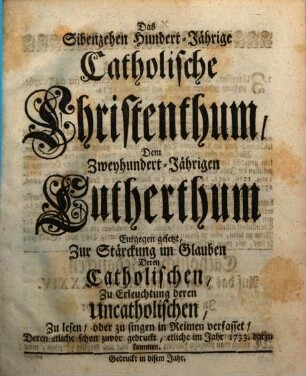 Das
Sibenzehen Hundert-Jährige
Catholische
Christenthum/
Dem
Zweyhundert-Jährigen
Lutherthum
Entgegen gesetzt,
Zur Stärckung im Glauben
Deren
Catholischen,
Zu Erleuchtung deren
Uncatholischen,
Zu lesen/ oder zu singen in Reimen verfasset/
Deren etliche schon zuvor gedruckt/ etliche im Jahr 1733. darzu
kommen.
Gedruckt in disem Jahr.